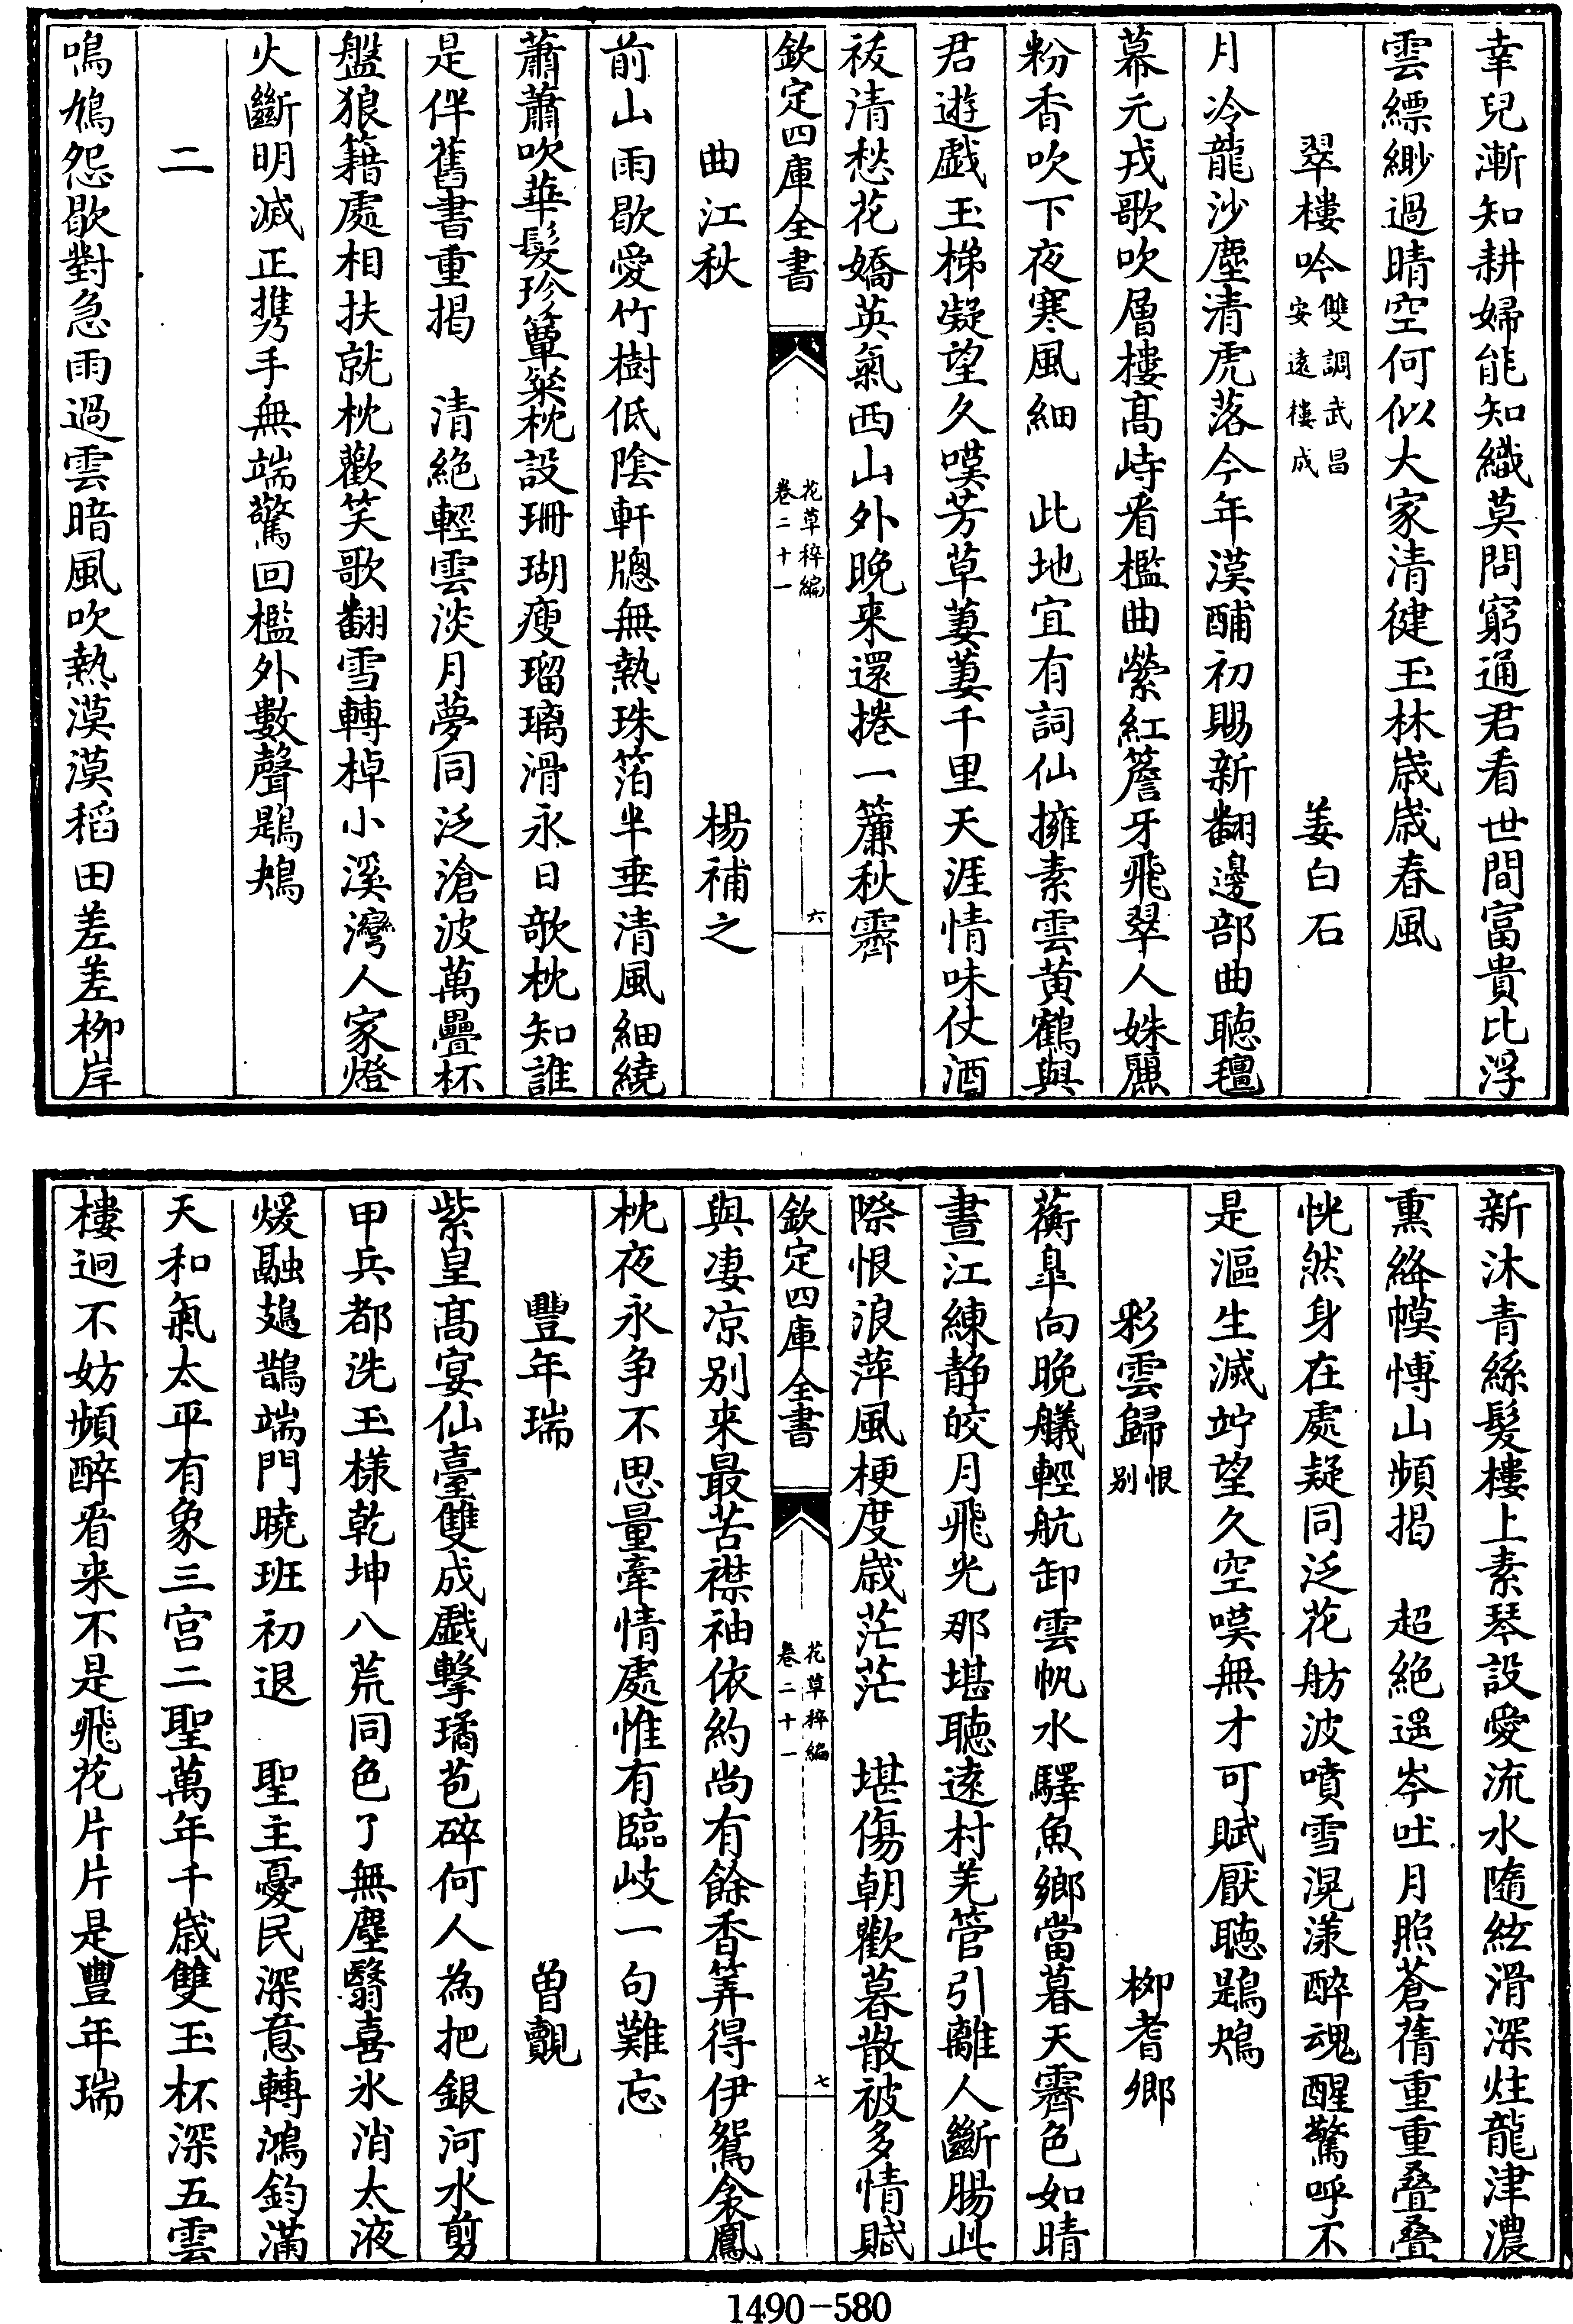 幸兒漸知耕婦能知織莫問窮通君看世間富貴比浮
雲縹緲過晴空何似大家清健玉林歳歳春風
翠樓吟雙調武昌安遠樓成 姜白石
月冷龍沙塵清虎落今年漢酺初賜新翻邊部曲聴氊
幕元戎歌吹層樓髙峙看檻曲縈紅簷牙飛翠人姝麗
粉香吹下夜寒風細 此地宜有詞仙擁素雲黄鶴與
君遊戯玉梯凝望久嘆芳草萋萋千里天涯情味仗酒
祓清愁花嬌英氣西山外晚来還捲一簾秋霽
欽定四庫全書 花草稡編卷二十一 六
曲江秋 楊補之
前山雨歇愛竹樹低隂軒牕無熱珠箔半垂清風細繞
蕭蕭吹華髮珍簟棐枕設珊瑚瘦瑠璃滑永日欹枕知誰
是伴舊書重揭 清絶輕雲淡月夢同泛滄波萬疊杯
盤狼籍處相扶就枕歡笑歌翻雪轉棹小溪灣人家燈
火斷明滅正携手無端驚回檻外數聲鶗鴂
二
鳴鳩怨歇對急雨過雲暗風吹熱漠漠稻田差差栁岸
新沐青絲髮樓上素琴設愛流水隨絃滑深炷龍津濃
熏絳幙愽山頻揭 超絶遥岑吐月照蒼蒨重重叠叠
恍然身在處疑同泛花舫波噴雪滉漾醉魂醒驚呼不
是漚生滅竚望久空嘆無才可賦厭聴鶗鴂
彩雲歸别恨 栁耆卿
蘅臯向晚艤輕航卸雲帆水驛魚鄉當暮天霽色如晴
晝江練静皎月飛光那堪聴逺村羌管引離人斷腸此
際恨浪萍風梗度歳茫茫 堪傷朝歡暮散被多情賦
欽定四庫全書 花草稡編卷二十一 七
與凄凉别来最苦襟袖依約尚有餘香筭得伊鴛衾鳳
枕夜永争不思量牽情處惟有臨岐一句難忘
豐年瑞 曽覿
紫皇髙宴仙臺雙成戯擊璚苞碎何人為把銀河水剪
甲兵都洗玉様乾坤八荒同色了無塵翳喜氷消太液
煖融鳷鵲端門曉班初退 聖主憂民深意轉鴻鈞滿
天和氣太平有象三宫二聖萬年千歳雙玉杯深五雲
樓迥不妨頻醉看来不是飛花片片是豐年瑞
1490-580